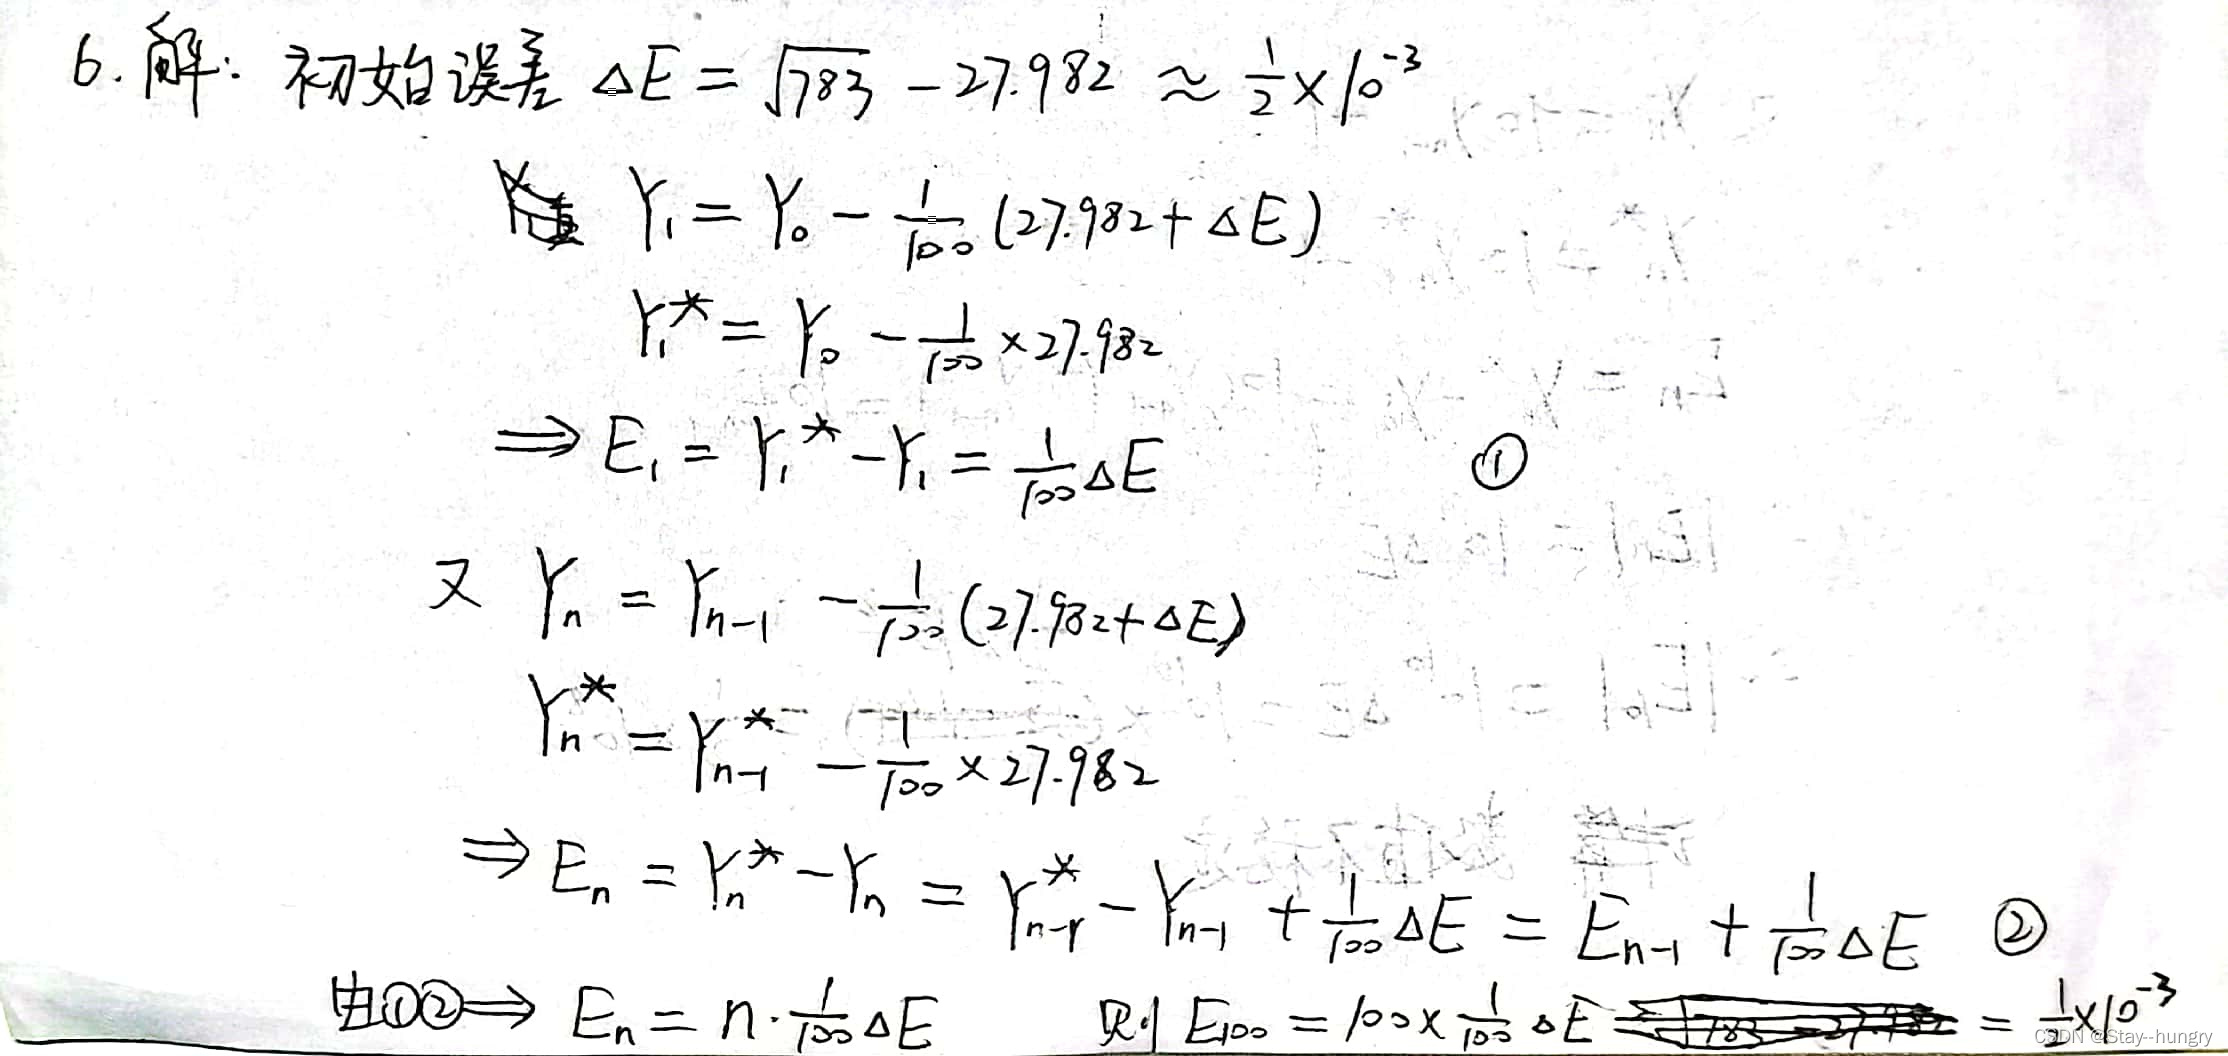 6. 解: 初始误差 ΔE = √783 - 27.982 ≈ 1/2 × 10^-3
Y₁ = Y₀ - 1/100 (27.982 + ΔE)
Y₁* = Y₀ - 1/100 × 27.982
⇒ E₁ = Y₁* - Y₁ = 1/100 ΔE ①
又 Yₙ = Yₙ₋₁ - 1/100 (27.982 + ΔE)
Yₙ* = Yₙ₋₁* - 1/100 × 27.982
⇒ Eₙ = Yₙ* - Yₙ = Yₙ₋₁* - Yₙ₋₁ + 1/100 ΔE = Eₙ₋₁ + 1/100 ΔE ②
由①②⇒ Eₙ = n · 1/100 ΔE 则 E₁₀₀ = 100 × 1/100 ΔE = 1/2 × 10^-3
CSDN @Stay--hungry